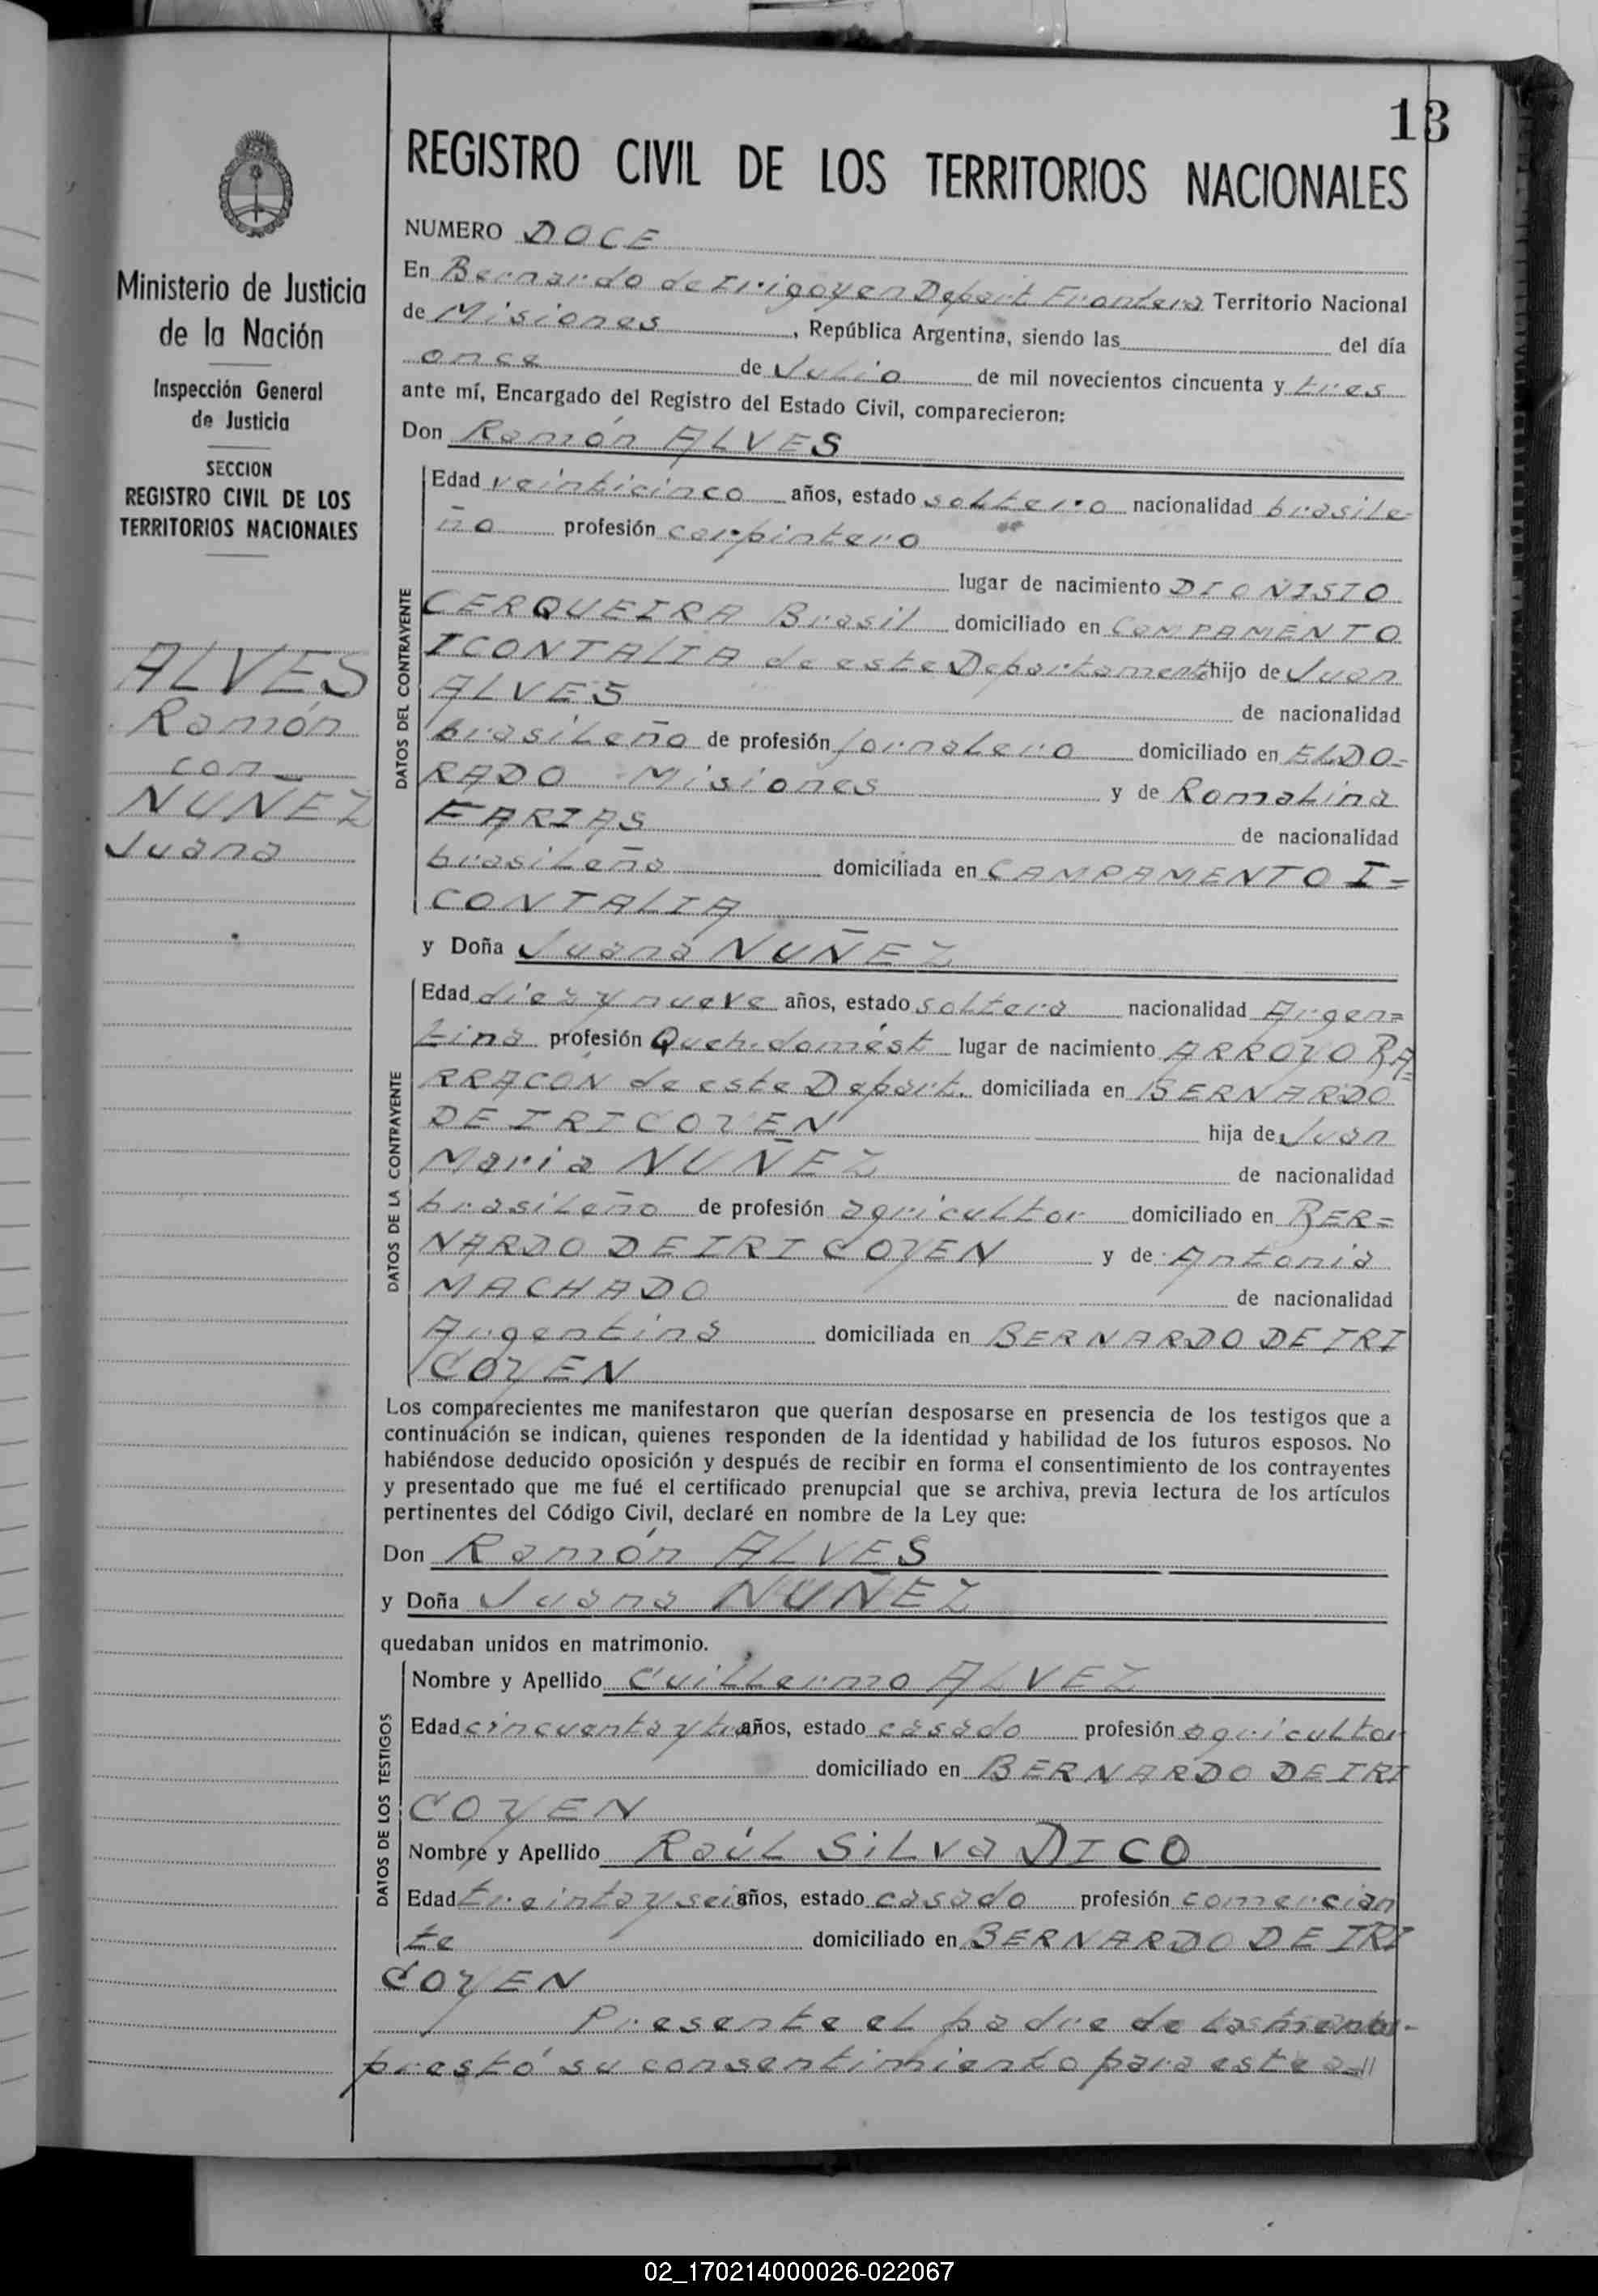 13
REGISTRO CIVIL DE LOS TERRITORIOS NACIONALES
Ministerio de Justicia
de la Nación
Inspección General
de Justicia
SECCION
REGISTRO CIVIL DE LOS
TERRITORIOS NACIONALES
ALVES
Ramón
con
NUÑEZ
Juana
NUMERO DOCE
En Bernardo de Irigoyen Depart Frontera Territorio Nacional
de Misiones, República Argentina, siendo las del día
once de Julio de mil novecientos cincuenta y tres
ante mí, Encargado del Registro del Estado Civil, comparecieron:
Don Ramón ALVES
DATOS DEL CONTRAYENTE
Edad veinticinco años, estado soltero nacionalidad brasile-
ño profesión carpintero
lugar de nacimiento DIONISIO
CERQUEIRA Brasil domiciliado en CAMPAMENTO
ICONTALIA de este Departamento hijo de Juan
ALVES de nacionalidad
brasileño de profesión jornalero domiciliado en ELDO=
RADO Misiones y de Romalina
FARIAS de nacionalidad
brasileña domiciliada en CAMPAMENTO I=
CONTALIA
y Doña Juana NUÑEZ
DATOS DE LA CONTRAYENTE
Edad diez y nueve años, estado soltera nacionalidad Argen=
tina profesión Queh. domést lugar de nacimiento ARROYO BA=
RRACON de este Depart. domiciliada en BERNARDO
DE IRIGOYEN hija de Juan
Maria NUÑEZ de nacionalidad
brasileño de profesión agricultor domiciliado en BER=
NARDO DE IRIGOYEN y de Antonia
MACHADO de nacionalidad
Argentina domiciliada en BERNARDO DE IRI
GOYEN
Los comparecientes me manifestaron que querían desposarse en presencia de los testigos que a
continuación se indican, quienes responden de la identidad y habilidad de los futuros esposos. No
habiéndose deducido oposición y después de recibir en forma el consentimiento de los contrayentes
y presentado que me fué el certificado prenupcial que se archiva, previa lectura de los artículos
pertinentes del Código Civil, declaré en nombre de la Ley que:
Don Ramón ALVES
y Doña Juana NUÑEZ
quedaban unidos en matrimonio.
DATOS DE LOS TESTIGOS
Nombre y Apellido Guillermo ALVEZ
Edad cincuenta y tres años, estado casado profesión agricultor
domiciliado en BERNARDO DE IRI
GOYEN
Nombre y Apellido Raúl SILVA DICO
Edad treinta y seis años, estado casado profesión comercian
te domiciliado en BERNARDO DE IRI
GOYEN
Presente el padre de la
prestó su consentimiento para este a=//
02_170214000026-022067